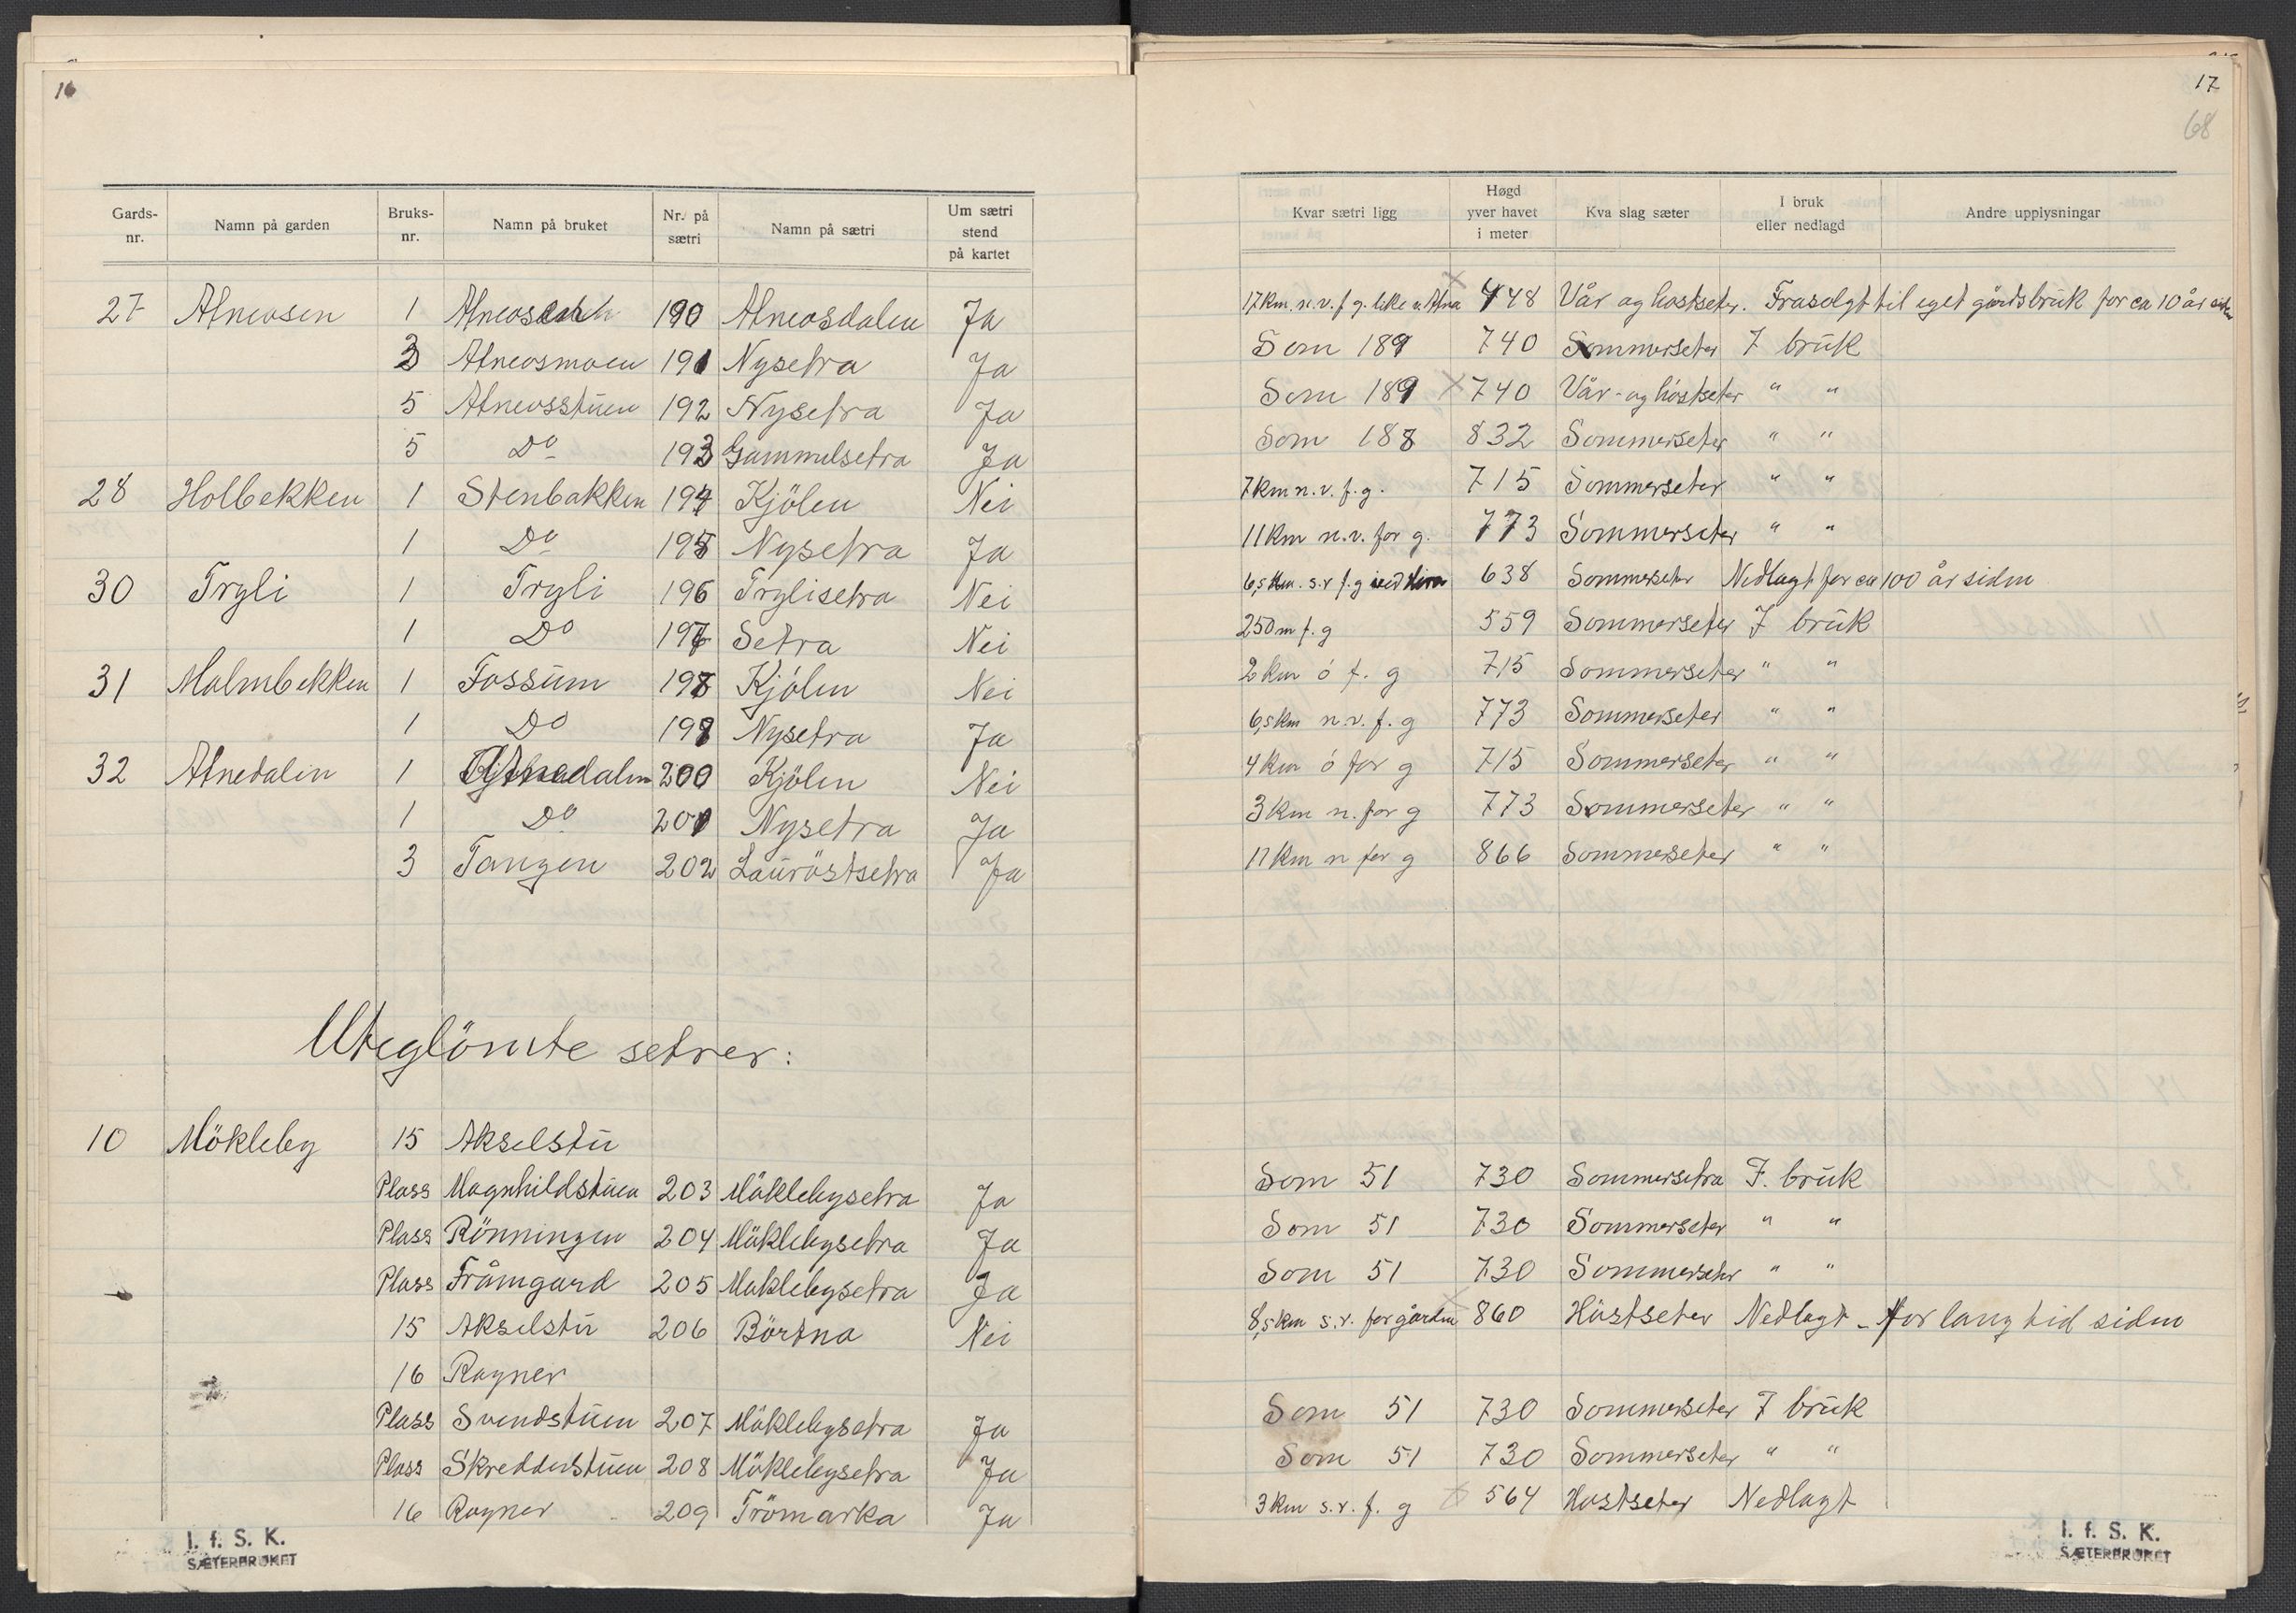 16
Gards-nr. Namn på garden Bruks-nr. Namn på bruket Nr. på sætri Namn på sætri Um sætri stend på kartet
27 Atneosen 1 190 Atneosdalen Ja
3 Atneosmoen 191 Nysetra Ja
5 Atneosstuen 192 Nysetra Ja
5 Do 193 Gammelsetra Ja
28 Holbekken 1 Stenbakken 194 Kjölen Nei
1 Do 195 Nysetra Ja
30 Tryli 1 Tryli 196 Trylisetra Nei
1 Do 197 Setra Nei
31 Malmbekken 1 Fossum 198 Kjölen Nei
1 Do 199 Nysetra Ja
32 Atnedalen 1 Atnedalen 200 Kjölen Nei
1 Do 201 Nysetra Ja
3 Tangen 202 Lauröstsetra Ja
Uteglömte setrer:
10 Mökleby 15 Akselstu
Plass Magnhildstuen 203 Möklebysetra Ja
Plass Rönningen 204 Möklebysetra Ja
Plass Fråmgard 205 Möklebysetra Ja
15 Akselstu 206 Börtna Nei
16 Ragner
Plass Svendstuen 207 Möklebysetra Ja
Plass Skredderstuen 208 Möklebysetra Ja
16 Ragner 209 Trömarka Ja
I. f. S. K.
SÆTERBRUKET
17
68
Kvar sætri ligg Høgd yver havet i meter Kva slag sæter I bruk eller nedlagd Andre upplysningar
17 km. n.v. f. g. like v. Atna 448 Vår og høstseter. Frasolgt til eget gårdsbruk for ca 10 år siden
Som 189 740 Sommerseter I bruk
Som 189 740 Vår- og høstseter " "
Som 188 832 Sommerseter " "
7 km n.v. f.g. 715 Sommerseter " "
11 km n.v. for g. 773 Sommerseter " "
6,5 km. s.v f.g 638 Sommerseter Nedlagt for ca 100 år siden
250 m f. g 559 Sommerseter I bruk
2 km ö f. g 715 Sommerseter " "
6,5 km n.v. f. g 773 Sommerseter " "
4 km ö for g 715 Sommerseter " "
3 km n. for g 773 Sommerseter " "
11 km n for g 866 Sommerseter " "
Som 51 730 Sommersetra I. bruk
Som 51 730 Sommerseter " "
Som 51 730 Sommerseter " "
8,5 km s.v. for gården 860 Höstseter Nedlagt - for lang tid siden
Som 51 730 Sommerseter I bruk
Som 51 730 Sommerseter " "
3 km s.v. f. g 564 Høstseter Nedlagt
I. f. S. K.
SÆTERBRUKET